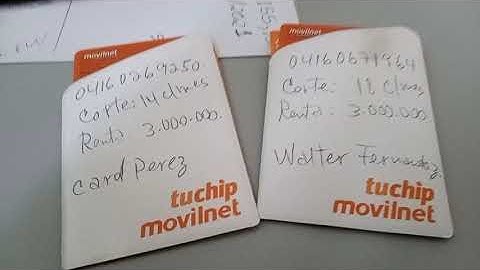 movilnet
04160269250
Corte: 14 c/mes
Renta 3.000.000.
Card Perez
tuchip
movilnet
movilnet
04160671964
Corte: 18 c/mes
Renta: 3.000.000.
Walter Fernandez
tuchip
movilnet